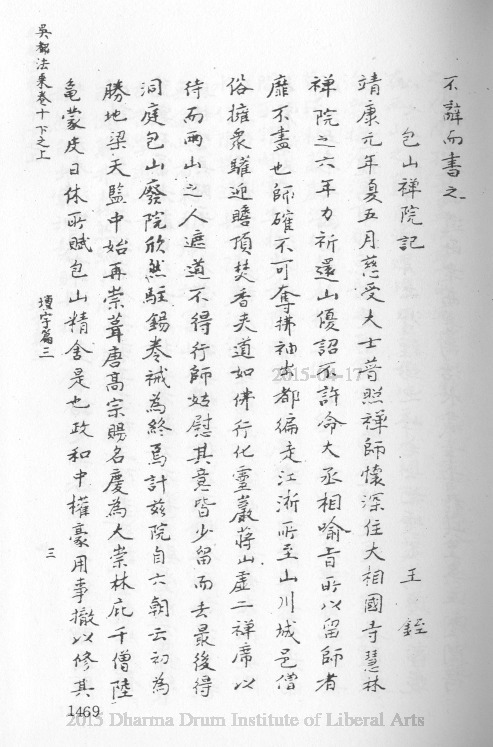 不辭而書之
包山禪院記　王銍
靖康元年夏五月慈受大士普照禪師懷深住大相國寺慧林
禪院之六年力祈還山優詔不許命大丞相喻旨所以留師者
靡不盡也師確不可奪拂袖出都徧走江淅所至山川城邑僧
俗擁衆驩迎瞻頂焚香夾道如佛行化靈巖蔣山虛二禪席以
待而兩山之人遮道不得行師姑慰其意皆少留而去最後得
洞庭包山廢院欣然駐錫卷裓為終焉計茲院自六朝云初為
勝地梁天監中始再崇葺唐髙宗賜名慶為大崇林庇千僧陸
龜蒙皮日休所賦包山精舍是也政和中權豪用事撤以修其
吳都法乘卷十下之上
壇宇篇三
三
1469
2015-04-17
2015 Dharma Drum Institute of Liberal Arts